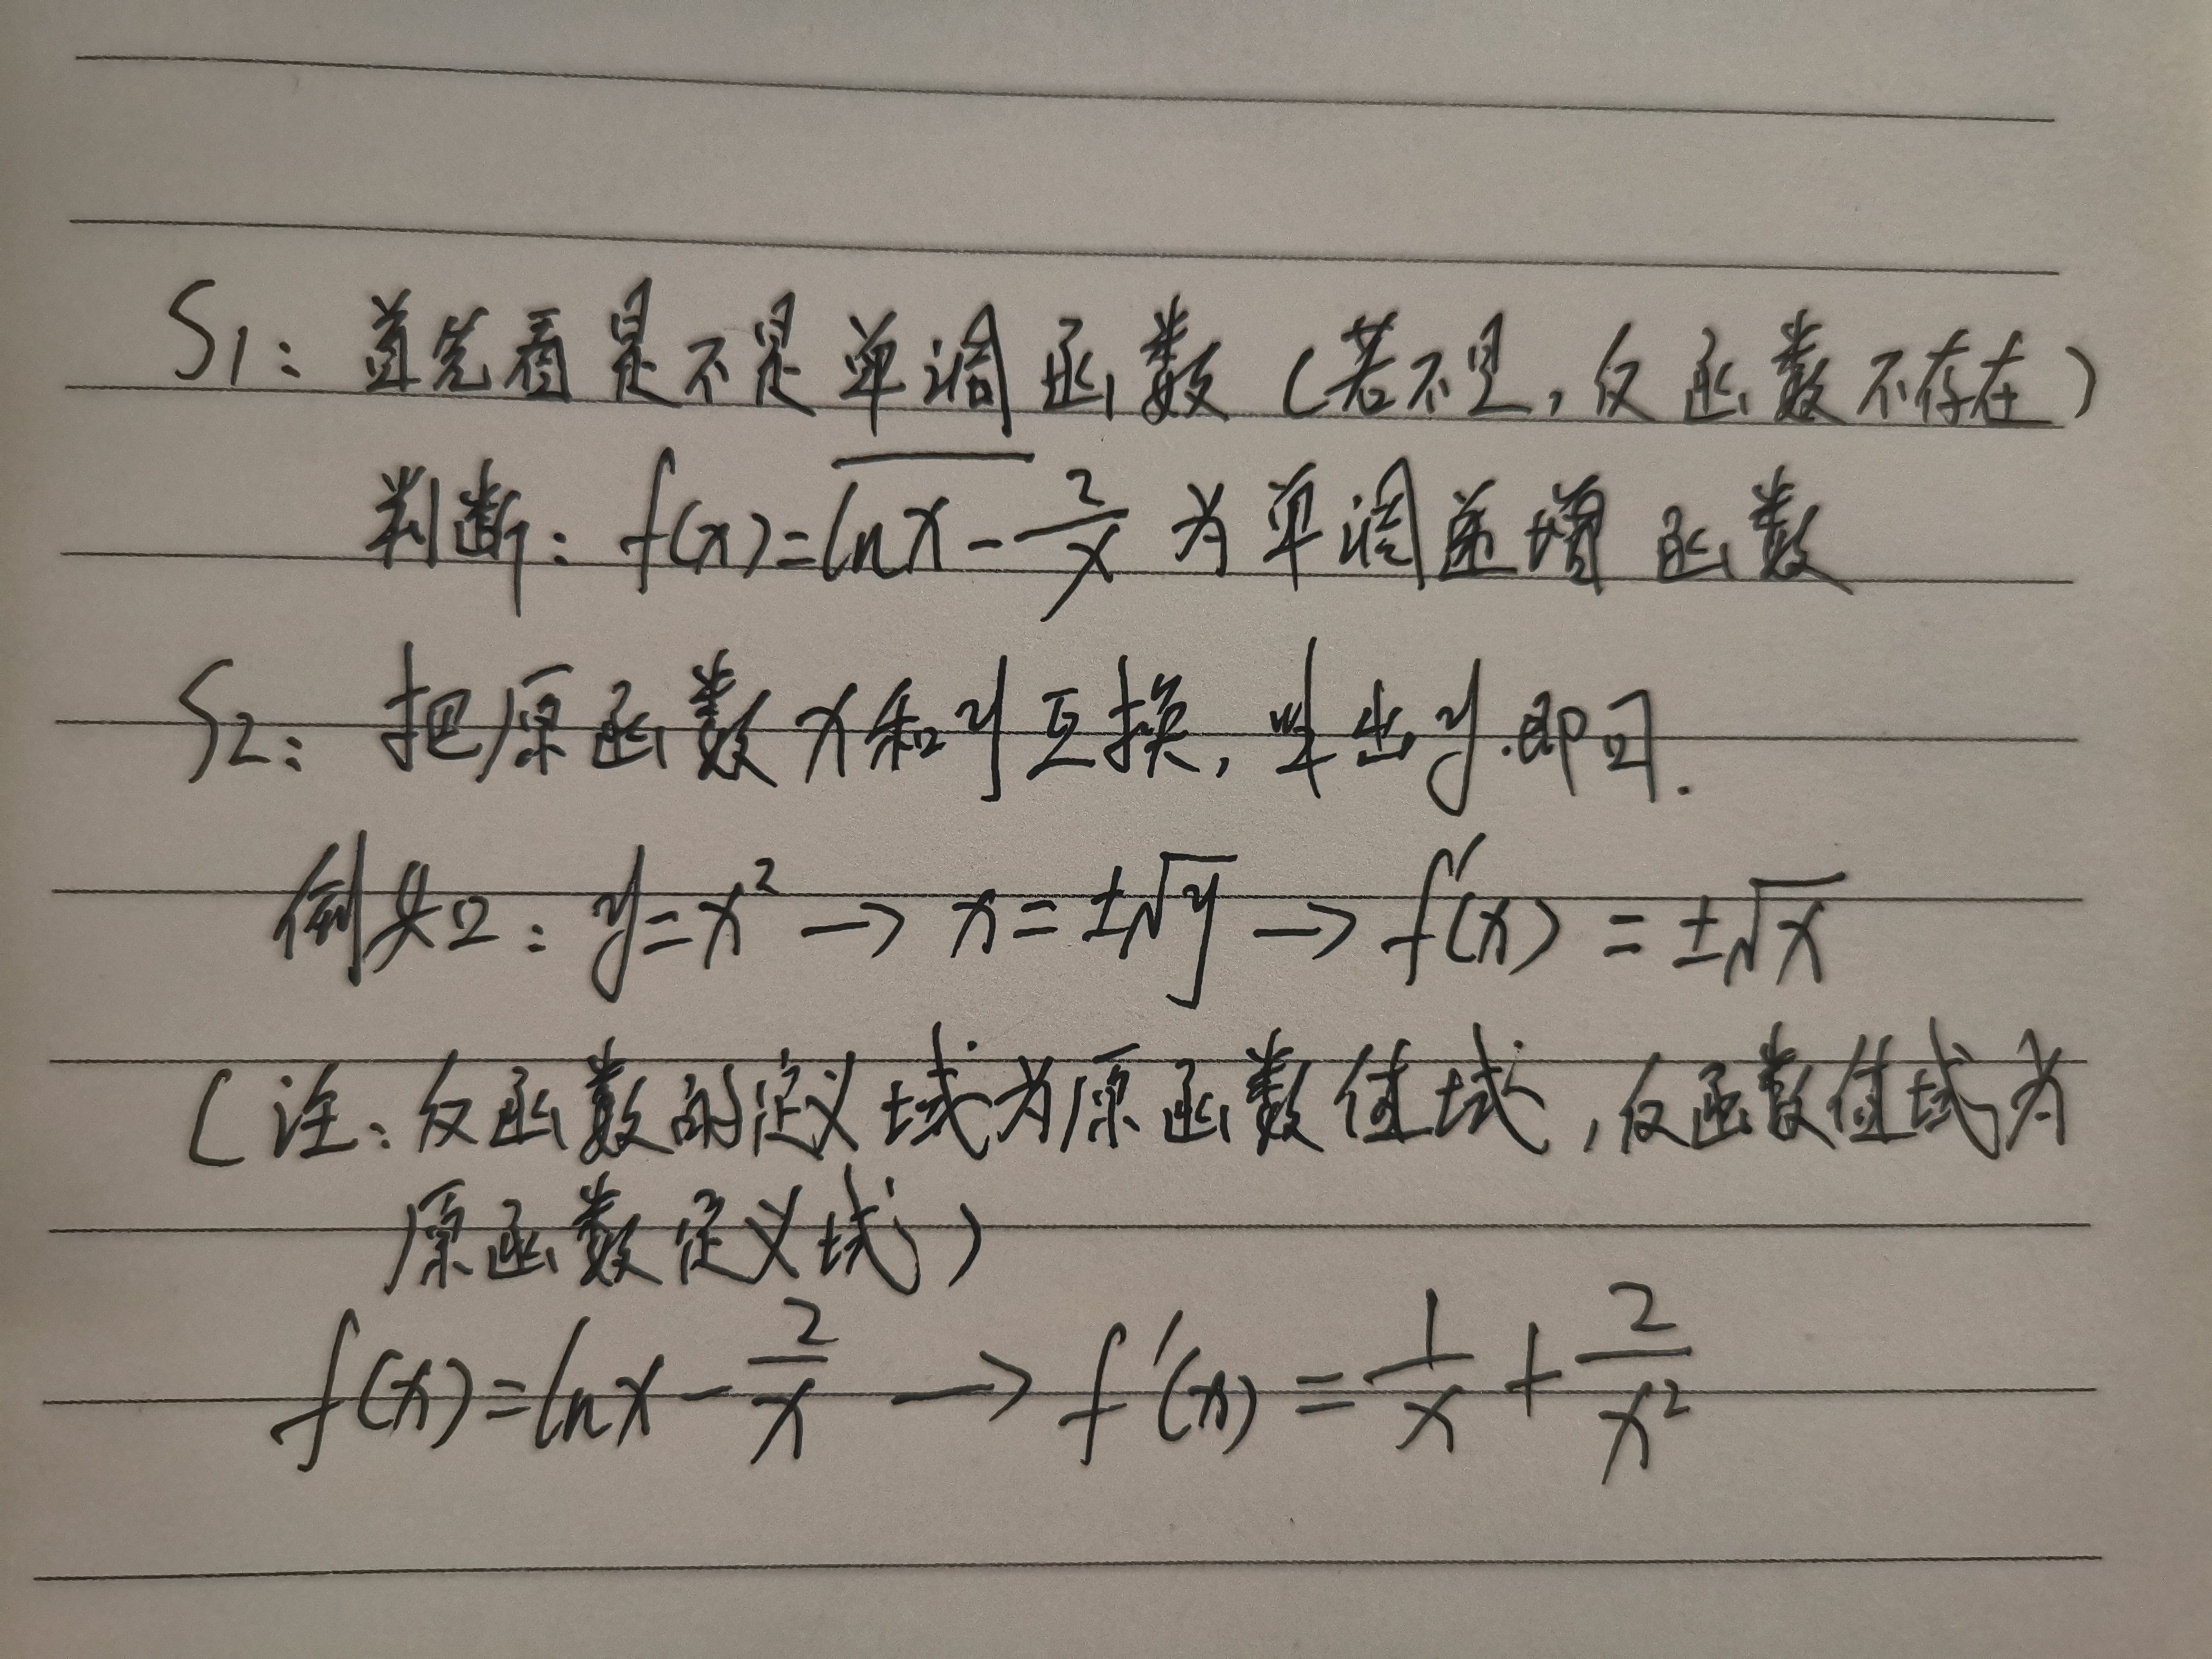 S1：首先看是不是单调函数（若不是，反函数不存在）
判断：f(x)=lnx-2/x 为单调递增函数
S2：把原函数x和y互换，求出y.即可.
例如：y=x² → x=±√y → f'(x)=±√x
（注：反函数的定义域为原函数值域，反函数值域为
原函数定义域）
f(x)=lnx-2/x → f'(x)=1/x+2/x²